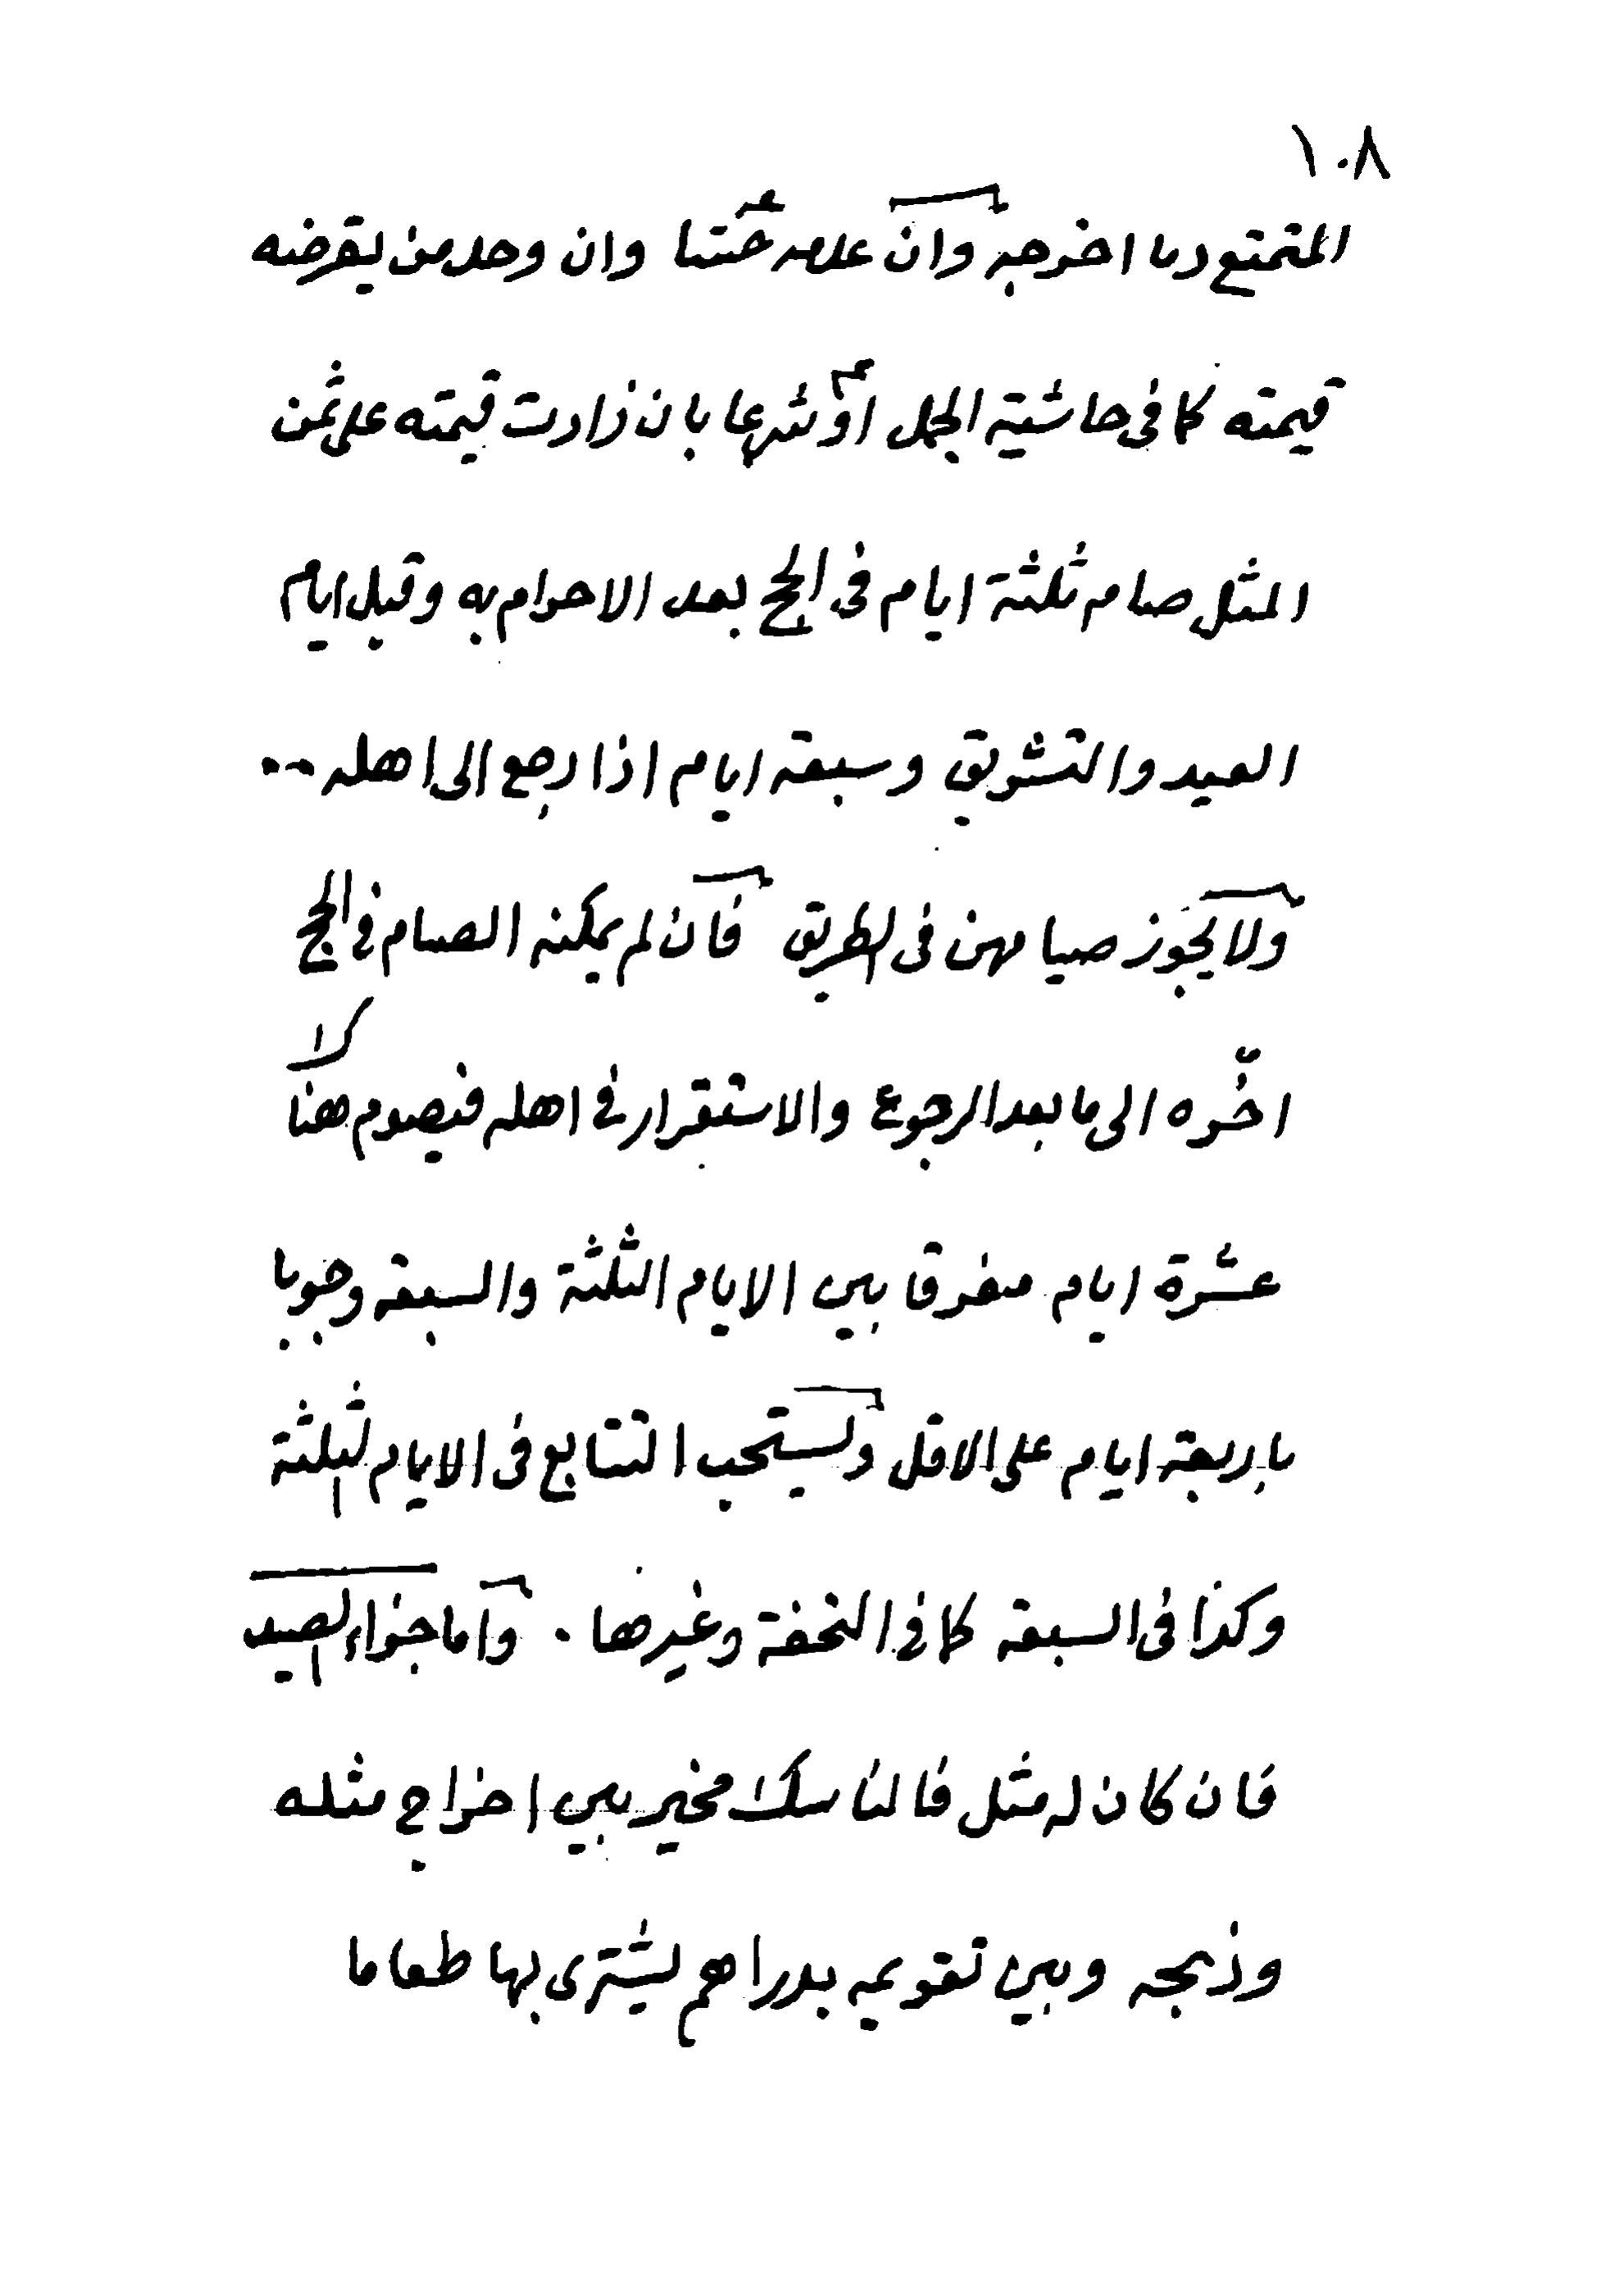 ١٠٨
المتمتع دما اخرجه وان عدمه حسّا وان وجد من يقرضه
قيمته كما فى حاشية الجمل او شرعا بان زادت قيمته على ثمن
المثل صام ثلثة ايام فى الحج بعد الاحرام به وقبل ايام
العيد والتشريق وسبعة ايام اذا رجع الى اهله ..
ولا يجوز صيامهن فى الطريق فان لم يمكنه الصيام فى الحج
اخّره الى ما بعد الرجوع والاستقرار فى اهله فيصوم هناك
عشرة ايام مفرقا بين الايام الثلثة والسبعة وجوبا
باربعة ايام على الاقل ويستحب التتابع فى الايام الثلثة
وكذا فى السبعة كما فى التحفة وغيرها . واما جزاء الصيد
فان كان له مثل فالناسك مخير بين اخراج مثله
وذبحه وبين تقويمه بدراهم ليشترى بها طعاما